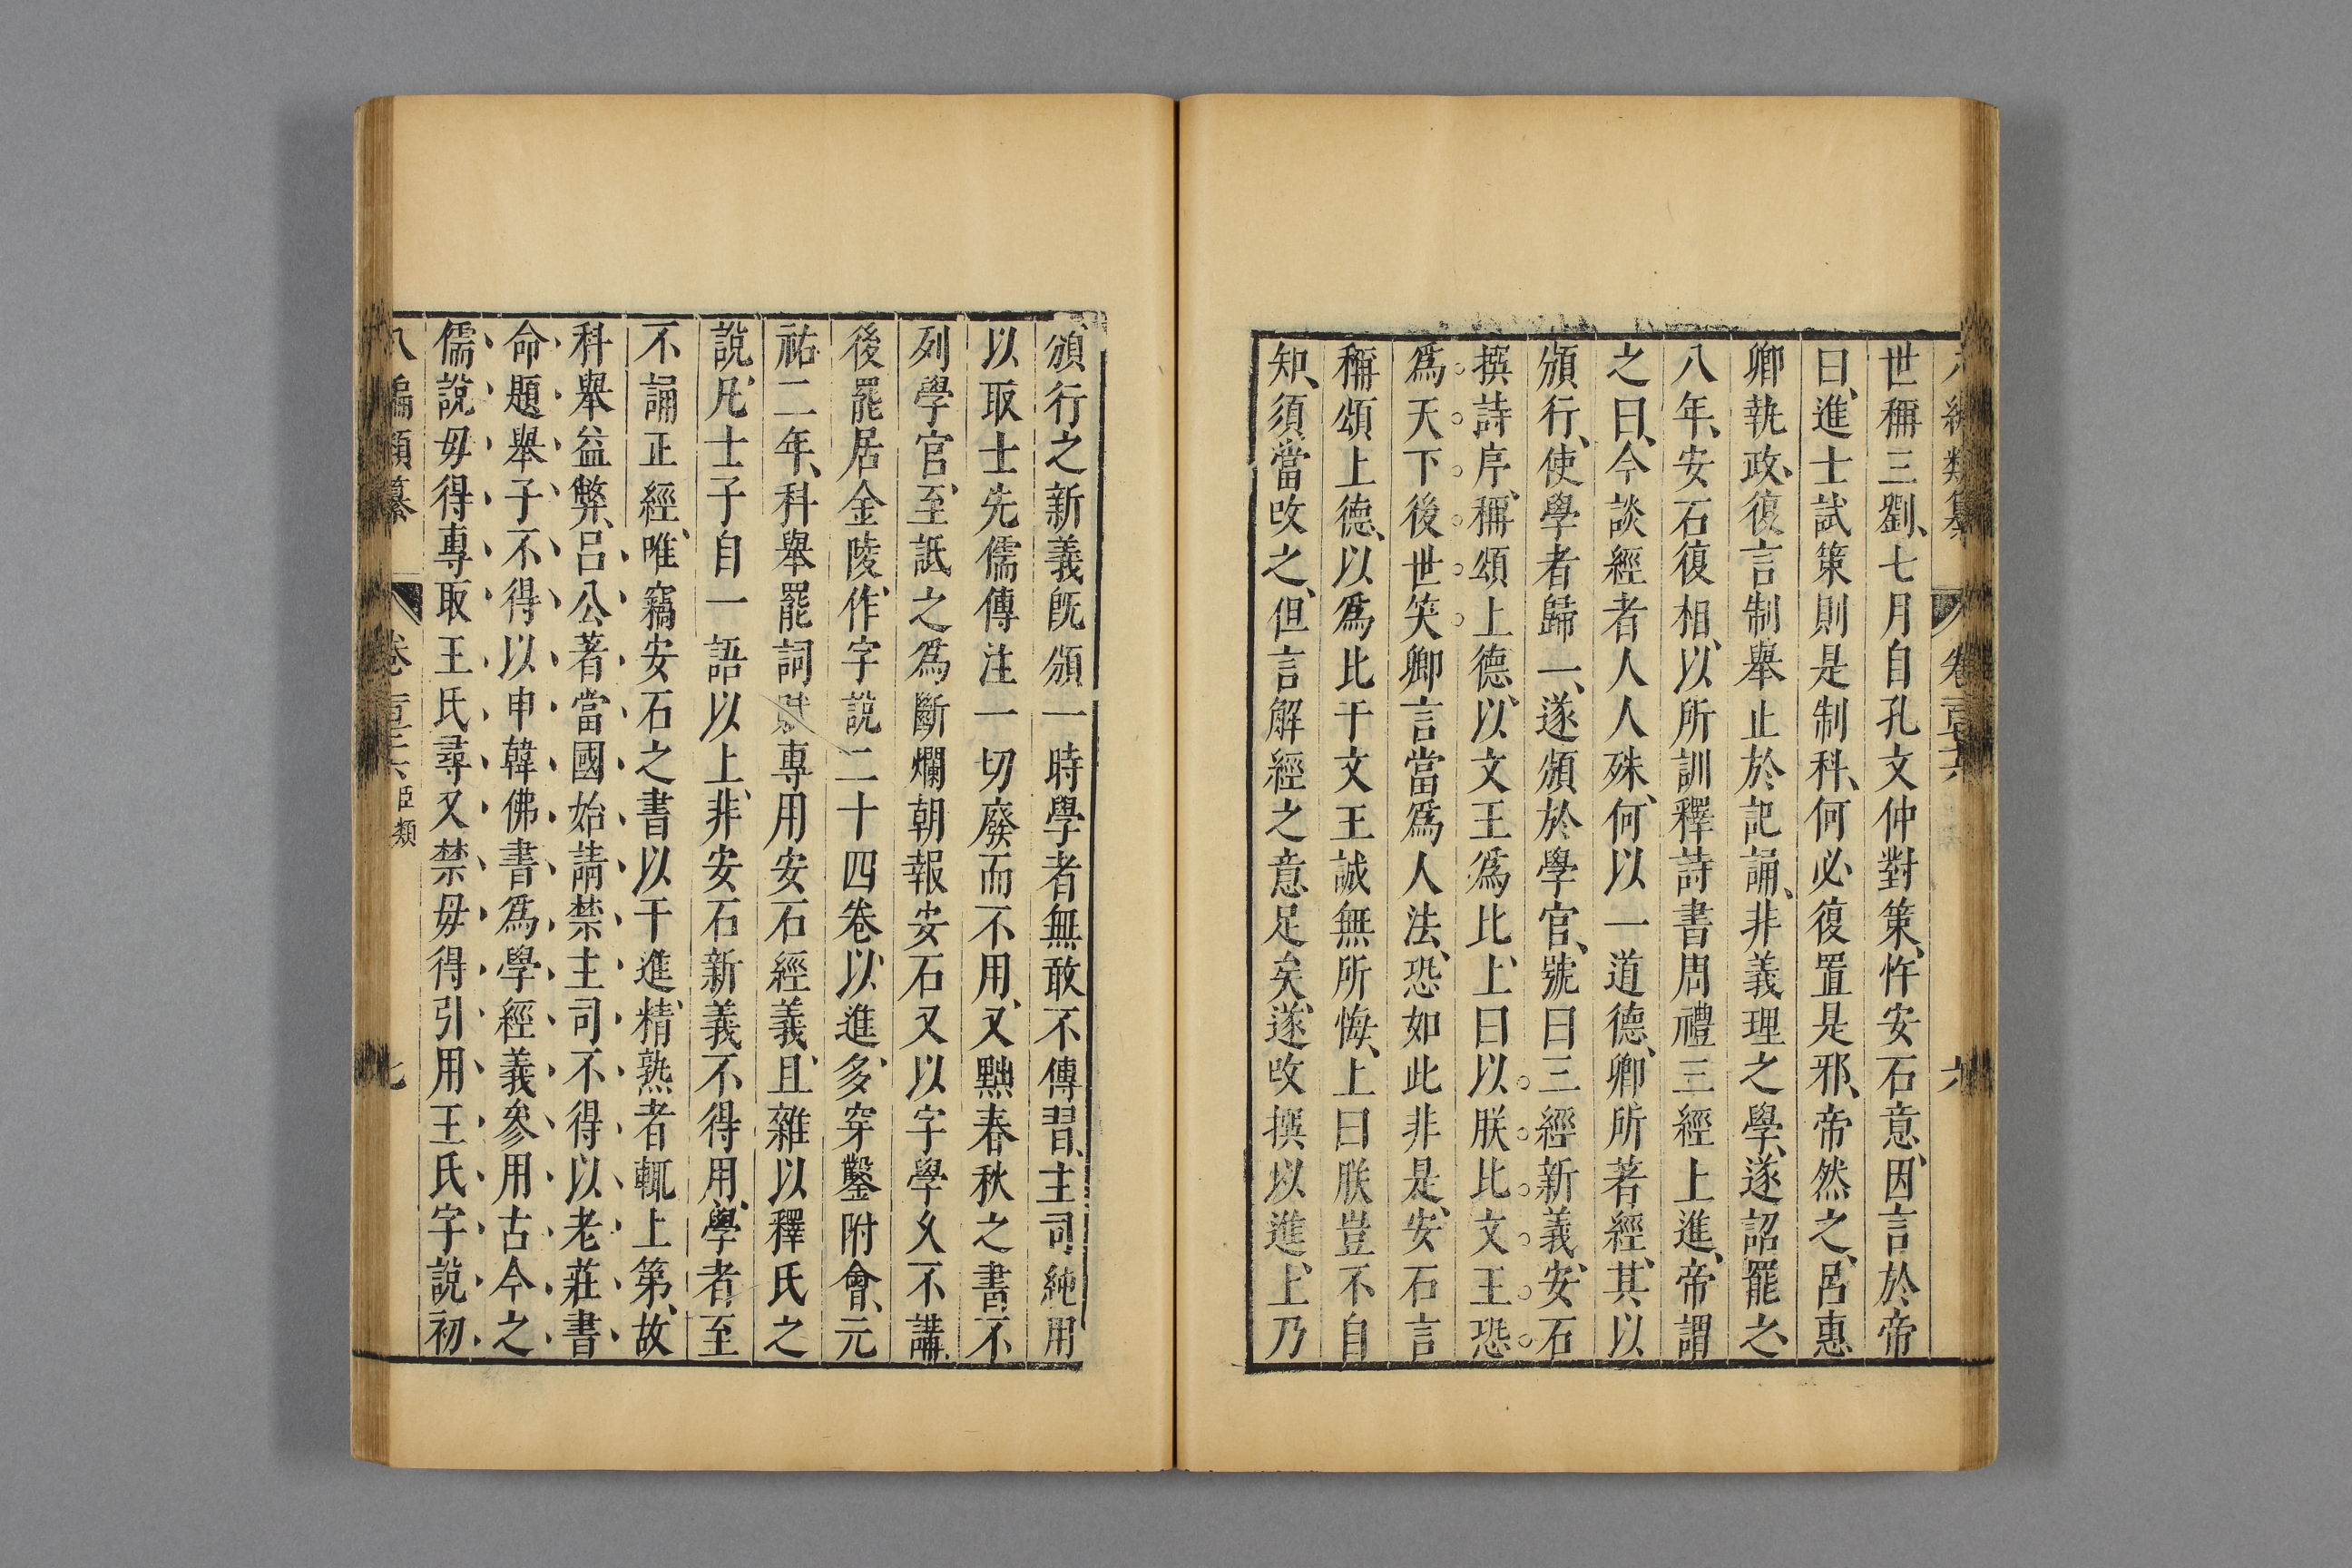 八編類纂 卷 六
世稱三劉、七月自孔文仲對策、忤安石意、因言於帝
曰、進士試策則是制科、何必復置是邪、帝然之、呂惠
卿執政、復言制舉止於記誦、非義理之學、遂詔罷之、
八年、安石復相、以所訓釋詩書周禮三經上進、帝謂
之曰、今談經者人人殊、何以一道德、卿所著經、其以
頒行、使學者歸一、遂頒於學官、號曰三經新義、安石
撰詩序、稱頌上德、以文王爲比、上曰以朕比文王恐
爲天下後世笑卿言當爲人法、恐如此非是、安石言
稱頌上德、以爲比于文王誠無所悔、上曰朕豈不自
知、須當改之、但言解經之意足矣、遂改撰以進、上乃
頒行之新義旣頒一時學者無敢不傳習、主司純用
以取士先儒傳注一切廢而不用、又黜春秋之書不
列學官、至詆之爲斷爛朝報安石又以字學久不講、
後罷居金陵、作字說二十四卷、以進、多穿鑿附會、元
祐二年、科舉罷詞賦專用安石經義、且雜以釋氏之
說、凡士子自一語以上、非安石新義不得用、學者至
不誦正經、唯竊安石之書以干進、精熟者輒上第、故
科舉益弊、呂公著當國始請禁主司不得以老莊書
命題舉子不得以申韓佛書爲學經義參用古今之
儒說毋得專取王氏尋又禁毋得引用王氏字說初
八編類纂 卷 臣類 七